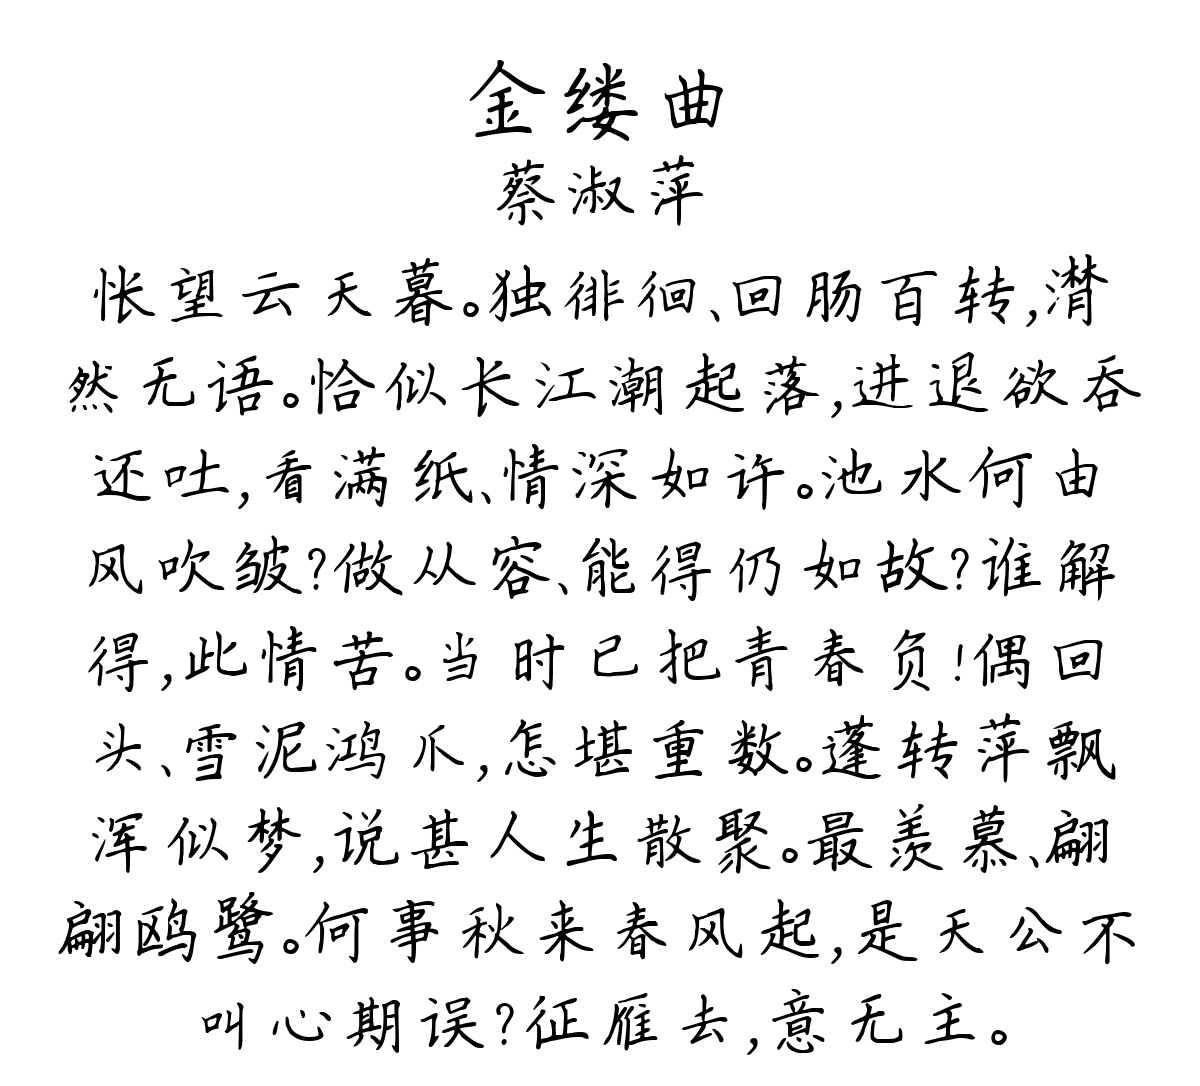 金缕曲
蔡淑萍
怅望云天暮。独徘徊、回肠百转,潸
然无语。恰似长江潮起落,进退欲吞
还吐,看满纸、情深如许。池水何由
风吹皱?做从容、能得仍如故?谁解
得,此情苦。当时已把青春负!偶回
头、雪泥鸿爪,怎堪重数。蓬转萍飘
浑似梦,说甚人生散聚。最羡慕、翩
翩鸥鹭。何事秋来春风起,是天公不
叫心期误?征雁去,意无主。